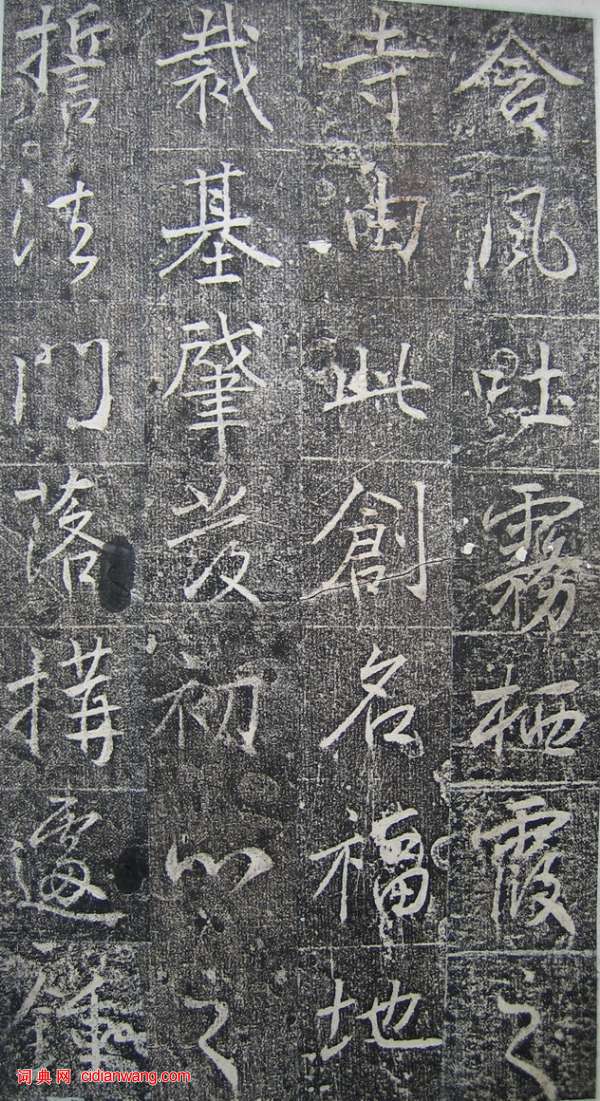 含風吐霧栖霞之
寺由此創名福地
裁基肇發初心之
誓法門落構遽鍾
词典网 cidianwang.com